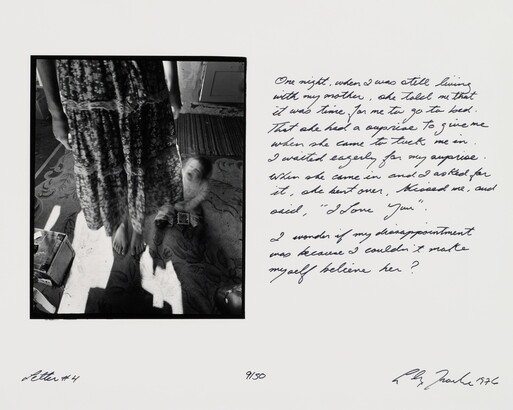 One night, when I was still living
with my mother, she told me that
it was time for me to go to bed.
That she had a suprise to give me
when she came to tuck me in.
I waited eagerly for my suprise.
When she came in and I asked for
it, she bent over, kissed me, and
said, "I Love You".
I wonder if my disappointment
was because I couldn't make
myself believe her?
Letter #4
9/50
1976